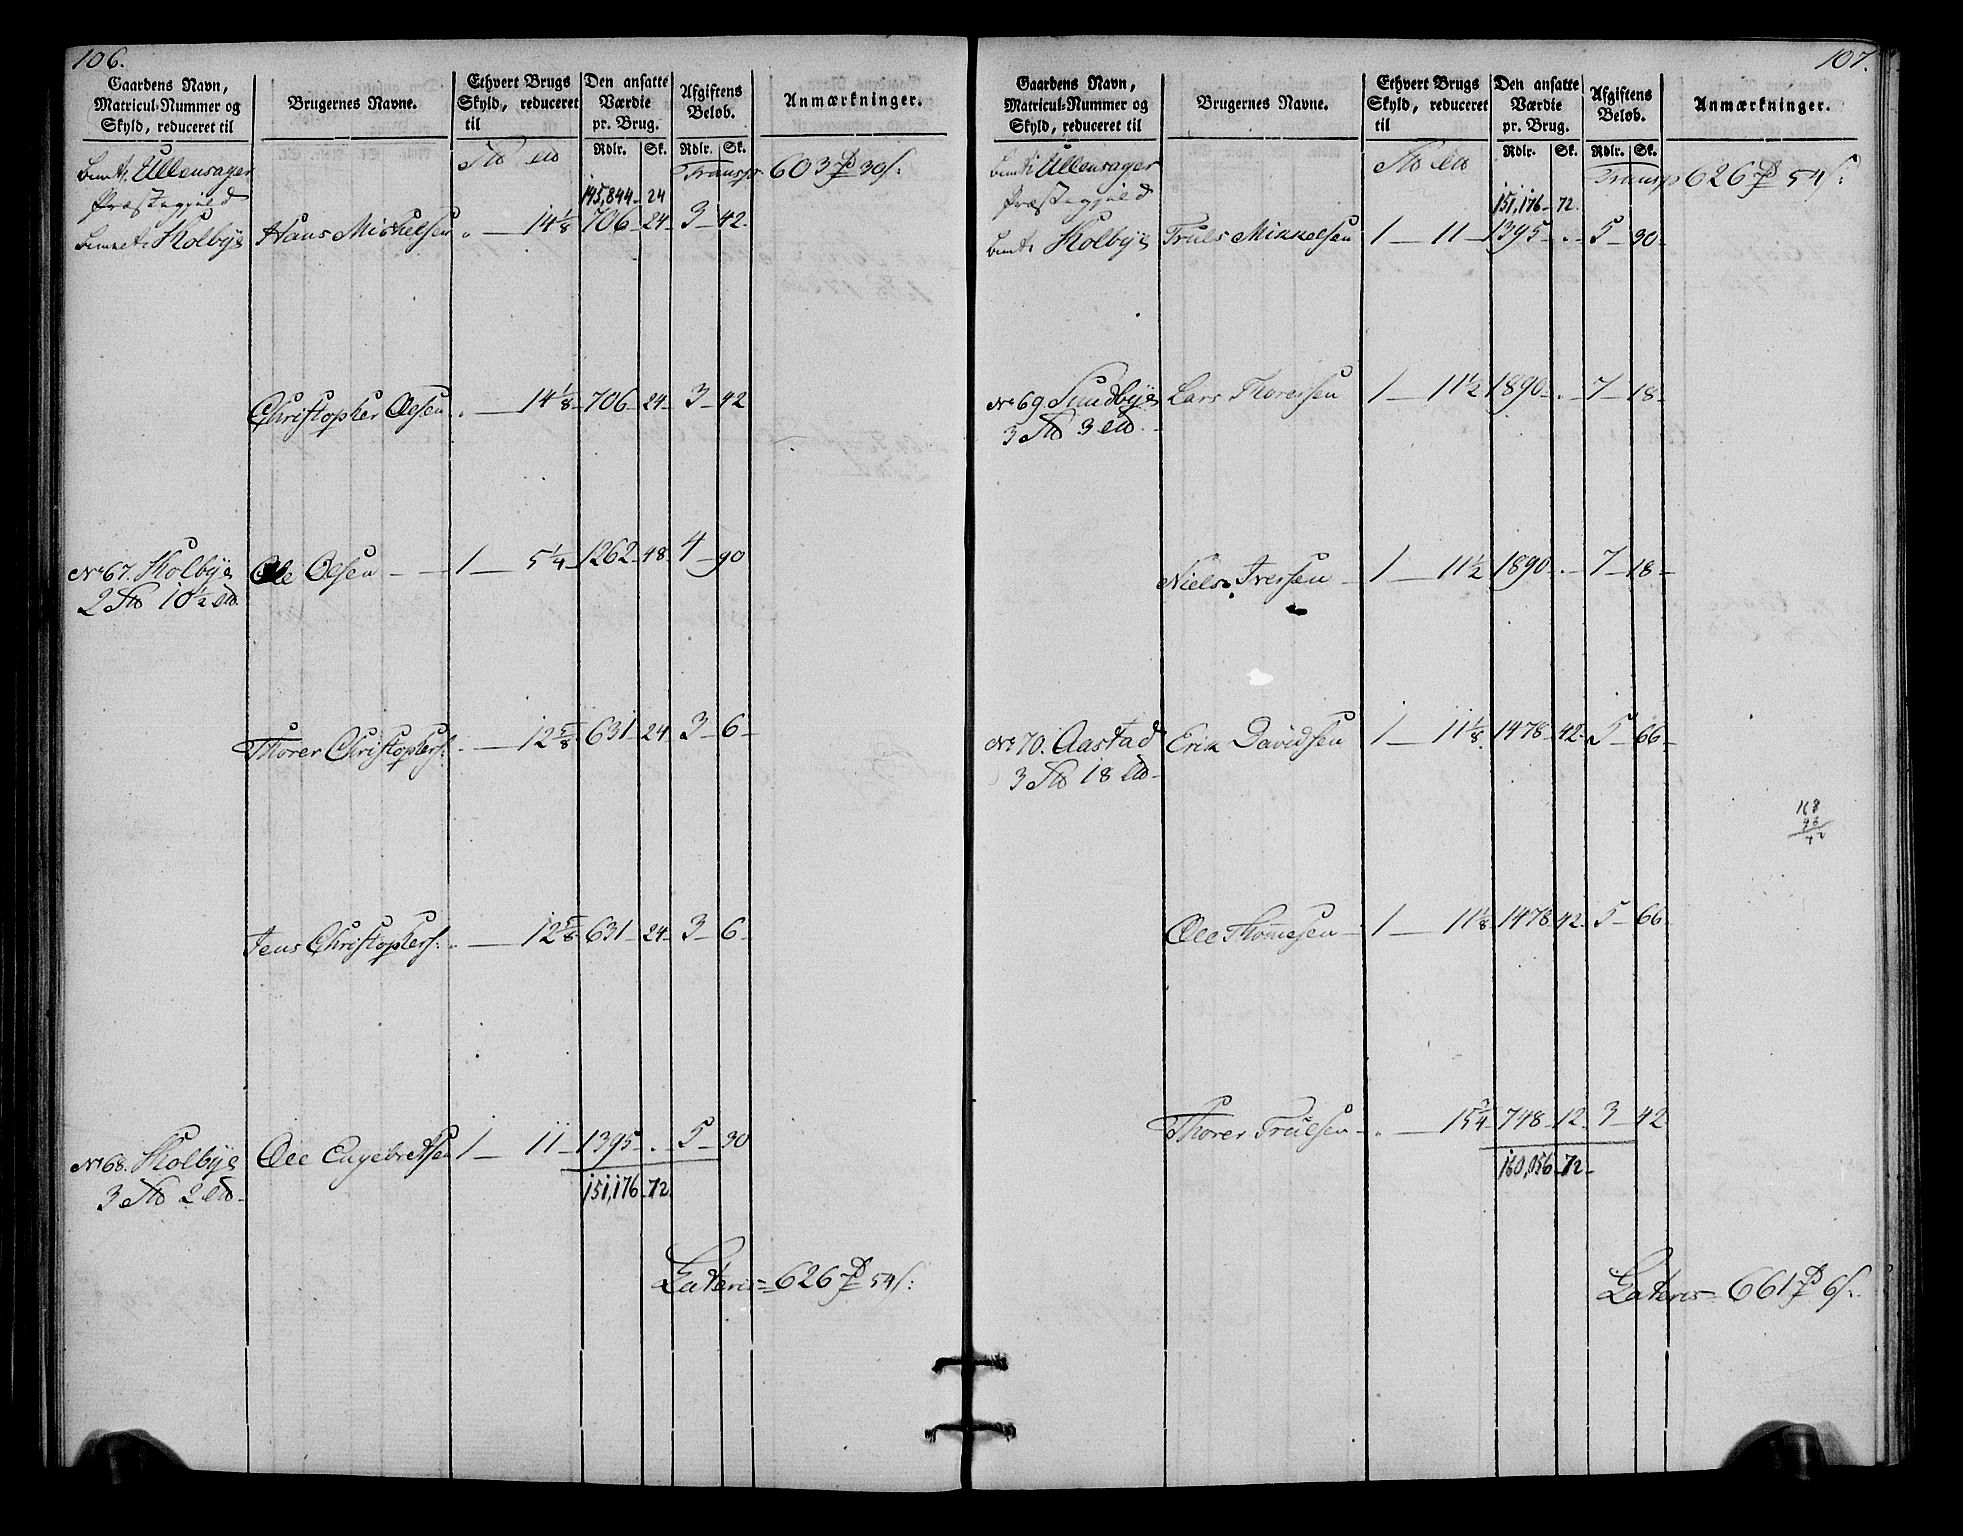 106.
Gaardens Navn, Matricul-Nummer og Skyld, reduceret til
Brugernes Navne.
Ethvert Brugs Skyld, reduceret til
Den ansatte Værdie pr. Brug.
Afgiftens Beløb.
Anmærkninger.
Rdlr. Sk. Rdlr. Sk.
Ullensager Transp 603 30
Præstegjeld 145,844 24
Kolbye Hans Mickelsen 14 1/8 706 24 3 42
Christopher Olsen 14 1/8 706 24 3 42
No 67. Kolbye Ole Olsen 1 5 1/4 1262 48 4 90
2 10 1/2
Thorer Christophers: 12 5/8 631 24 3 6
Jens Christophers: 12 5/8 631 24 3 6
No 68. Kolbye Ole Engebretsen 1 11 1395 . 5 30
3 2
151,176 72
Lateris 626 54
107.
Gaardens Navn, Matricul-Nummer og Skyld, reduceret til
Brugernes Navne.
Ethvert Brugs Skyld, reduceret til
Den ansatte Værdie pr. Brug.
Afgiftens Beløb.
Anmærkninger.
Rdlr. Sk. Rdlr. Sk.
Ullensager Transp 626 54
Præstegjeld 151,176 72
Kolbye Truls Mikkelsen 1 11 1395 . 5 30
No 69 Sundbye Lars Thoresen 1 11 1/2 1890 . 7 18
3 3
Niels Iversen 1 11 1/2 1890 . 7 18
No 70. Aastad Erik Davidsen 1 11 1/8 1478 42 5 66
3 18
168
96
72
Ole Thomesen 1 11 1/8 1478 42 5 66
Thorer Trulsen 15 3/4 748 12 3 42
160,056 72
Lateris 661 6